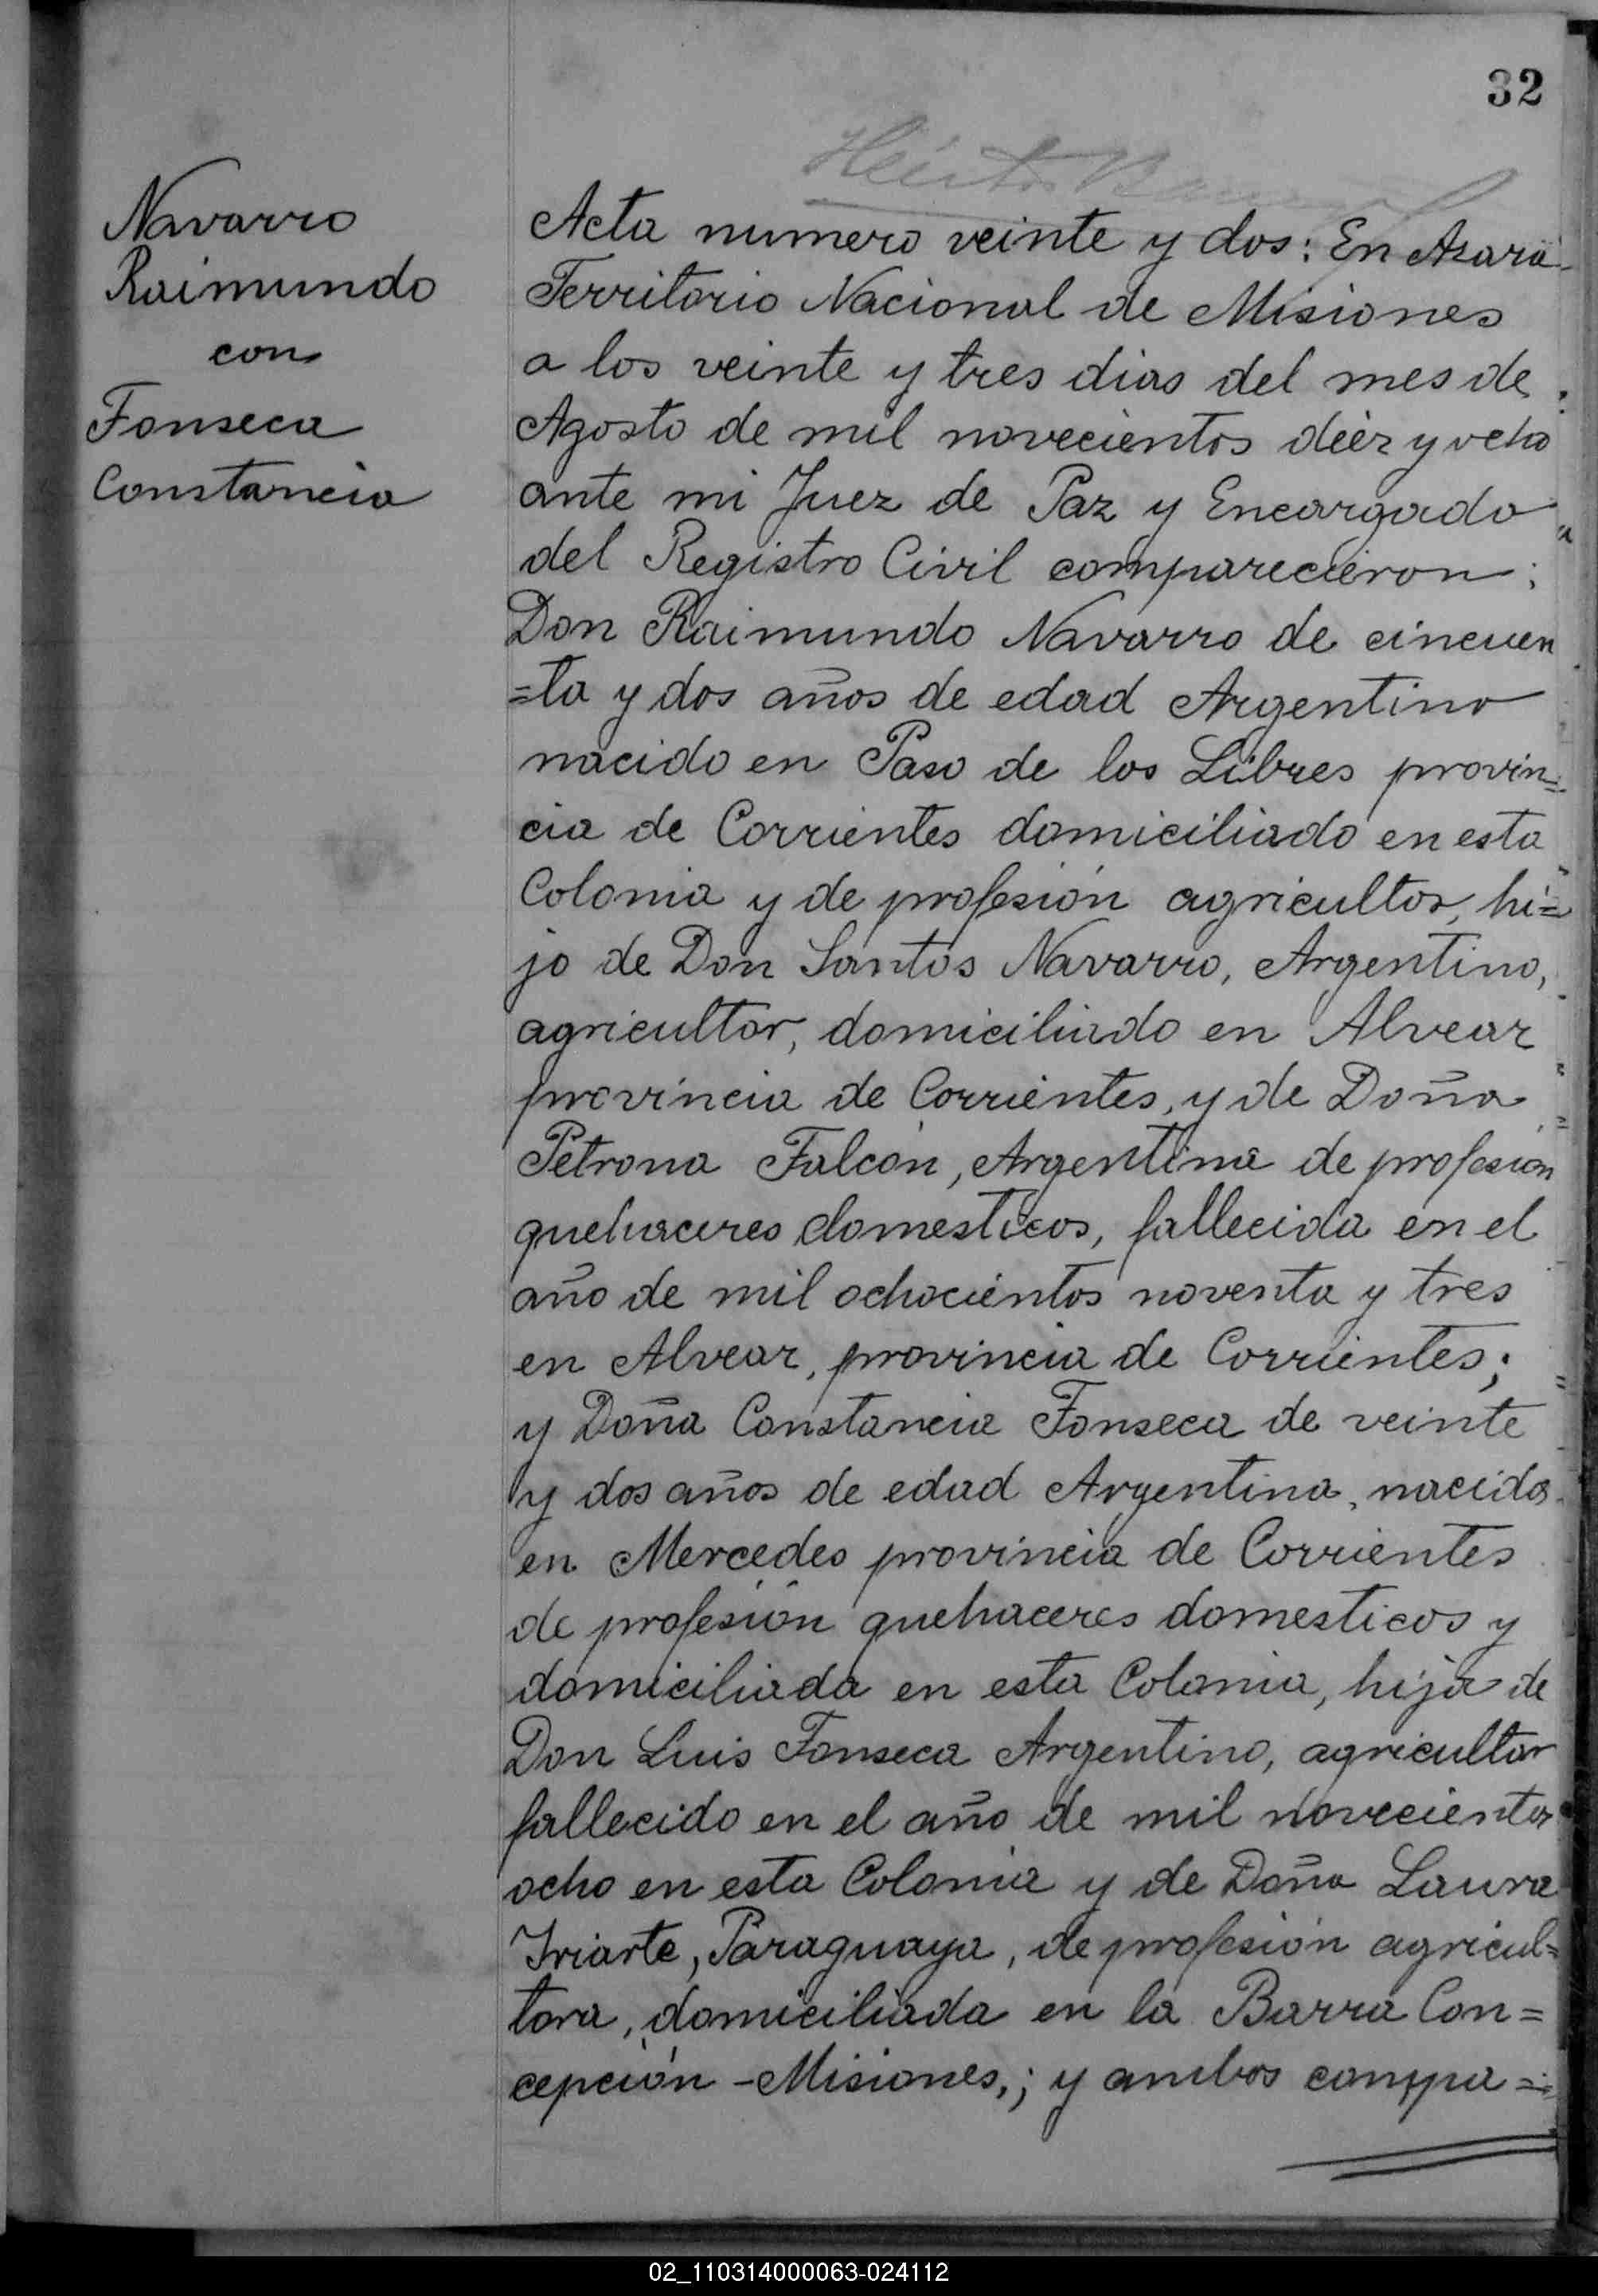 32
Navarro
Raimundo
con
Fonseca
Constancia
Acta numero veinte y dos: En Azara
Territorio Nacional de Misiones
a los veinte y tres dias del mes de
Agosto de mil novecientos diéz y ocho
ante mi Juez de Paz y Encargado
del Registro Civil comparecieron:
Don Raimundo Navarro de cincuen
=ta y dos años de edad Argentino
nacido en Paso de los Libres provin=
cia de Corrientes domiciliado en esta
Colonia y de profesión agricultor, hi=
jo de Don Santos Navarro, Argentino,
agricultor, domiciliado en Alvear
provincia de Corrientes, y de Doña
Petrona Falcón, Argentina de profesion
quehaceres domesticos, fallecida en el
año de mil ochocientos noventa y tres
en Alvear, provincia de Corrientes;
y Doña Constancia Fonseca de veinte
y dos años de edad Argentina, nacida
en Mercedes provincia de Corrientes
de profesión quehaceres domesticos y
domiciliada en esta Colonia, hija de
Don Luis Fonseca Argentino, agricultor
fallecido en el año de mil novecientos
ocho en esta Colonia y de Doña Laura
Iriarte, Paraguaya, de profesión agricul=
tora, domiciliada en la Barra Con=
cepción - Misiones,; y ambos compa=
02_110314000063-024112